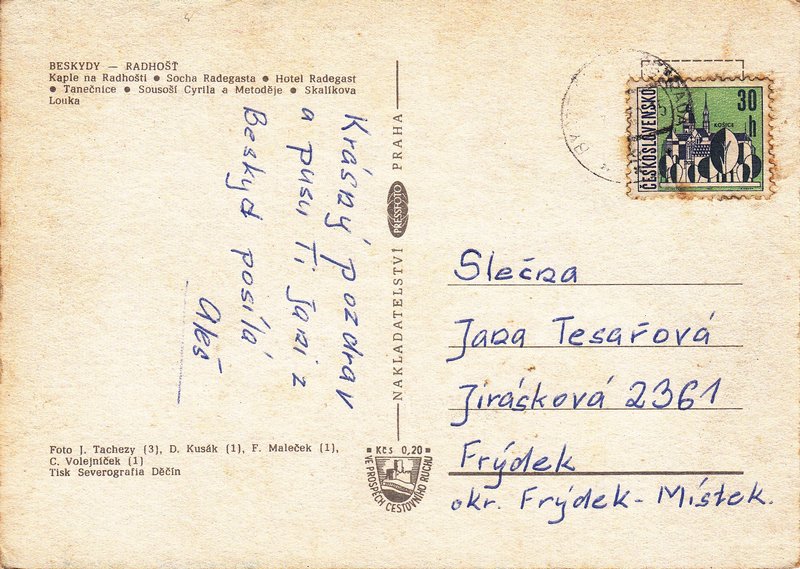 BESKYDY — RADHOŠŤ
Kaple na Radhošti ● Socha Radegasta ● Hotel Radegast
● Tanečnice ● Sousoší Cyrila a Metoděje ● Skalíkova
Louka
Krásný pozdrav
a pusu Ti Jani z
Beskyd posílá
Aleš
NAKLADATELSTVÍ PRESSFOTO PRAHA
ČESKOSLOVENSKO
30
h
KOŠICE
Slečna
Jana Tesařová
Jirásková 2361
Frýdek
okr. Frýdek-Místek.
Foto J. Tachezy (3), D. Kusák (1), F. Maleček (1),
C. Volejníček (1)
Tisk Severografia Děčín
■ Kčs 0,20 ■
VE PROSPĚCH CESTOVNÍHO RUCHU